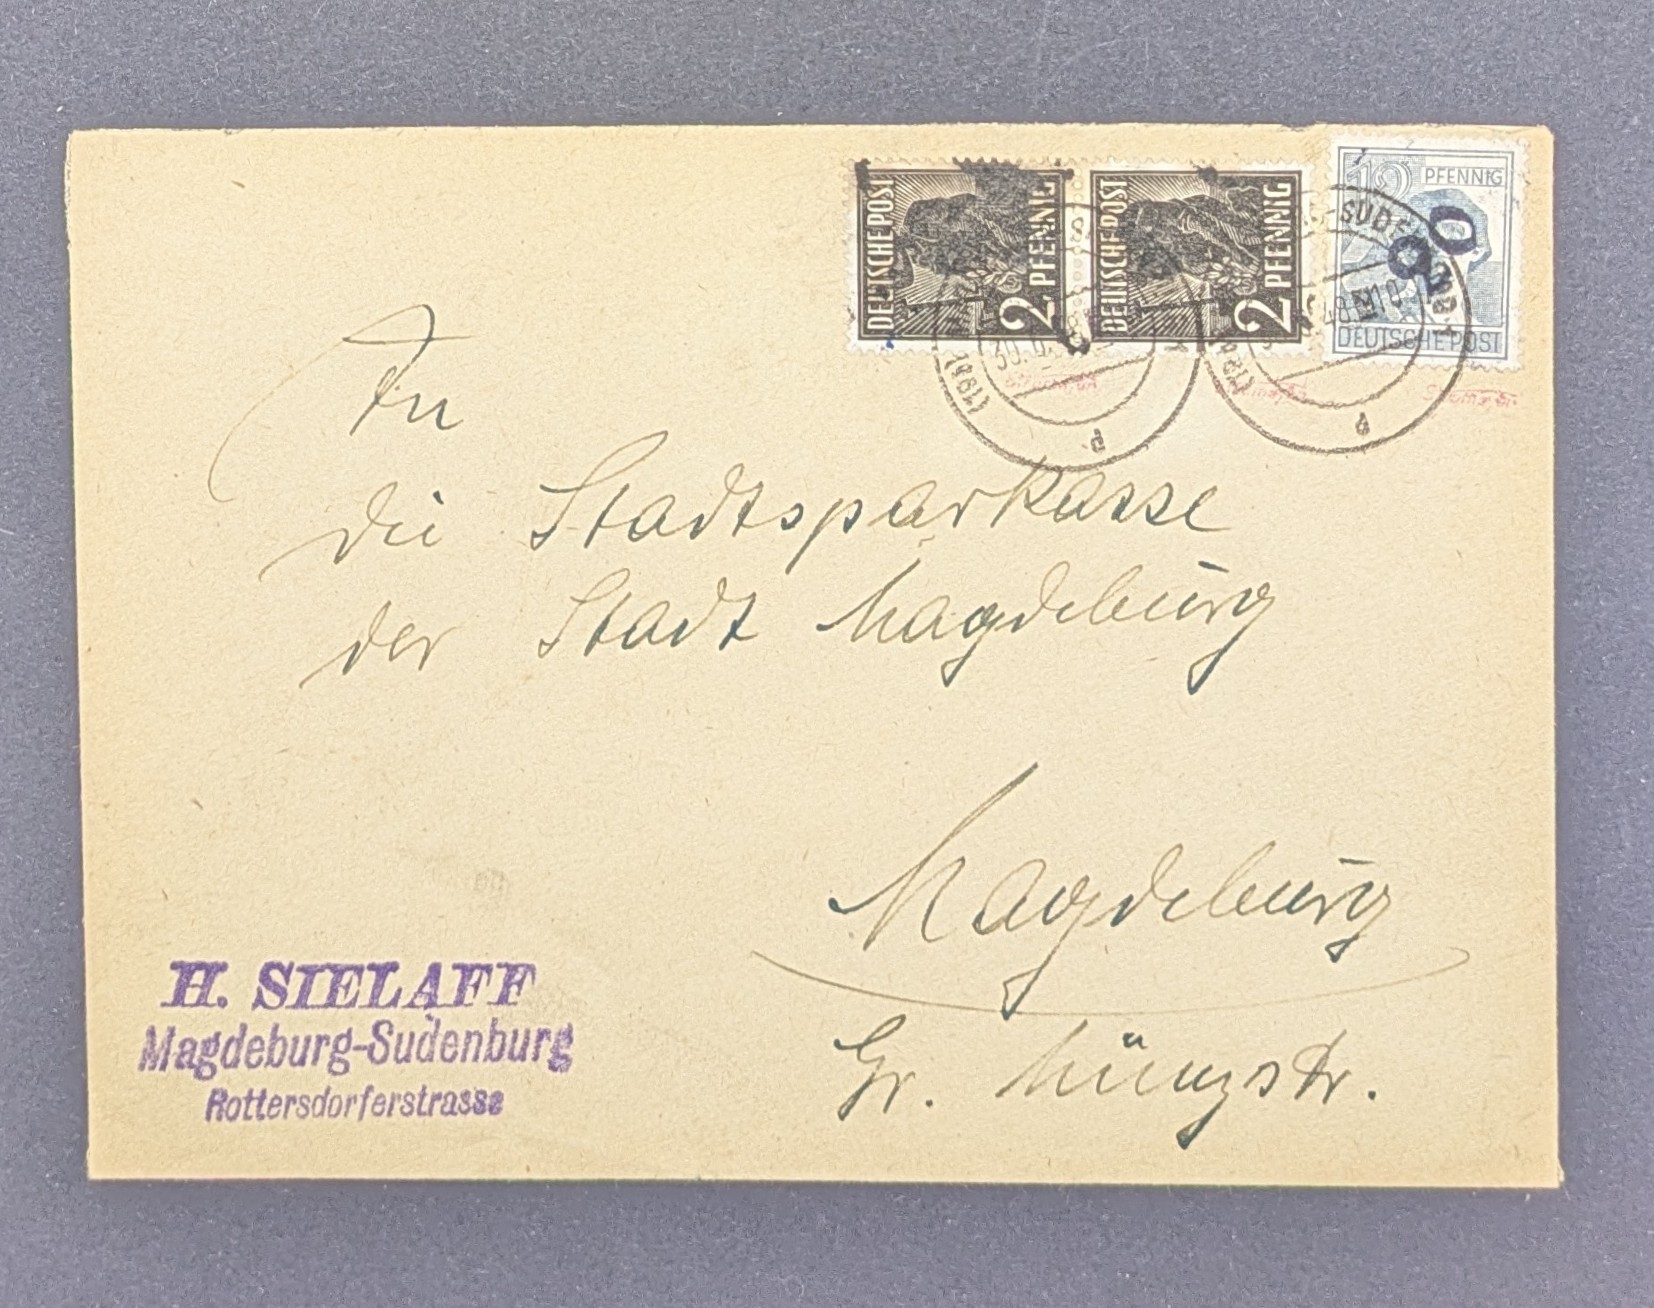 DEUTSCHE POST
2 PFENNIG
DEUTSCHE POST
2 PFENNIG
12 PFENNIG
DEUTSCHE POST
An
die Stadtsparkasse
der Stadt Magdeburg
Magdeburg
Gr. Münzstr.
H. SIELAFF
Magdeburg-Sudenburg
Rottersdorferstrasse